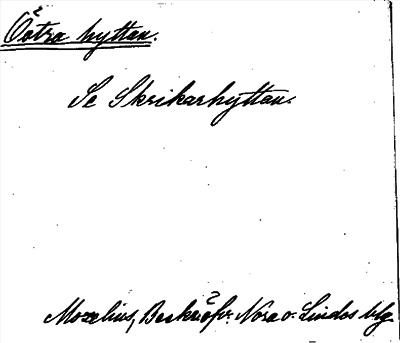 Östra hyttan.
Se Skrikarhyttan.
Mozelius, Beskrifv. Nora o. Lindes blg